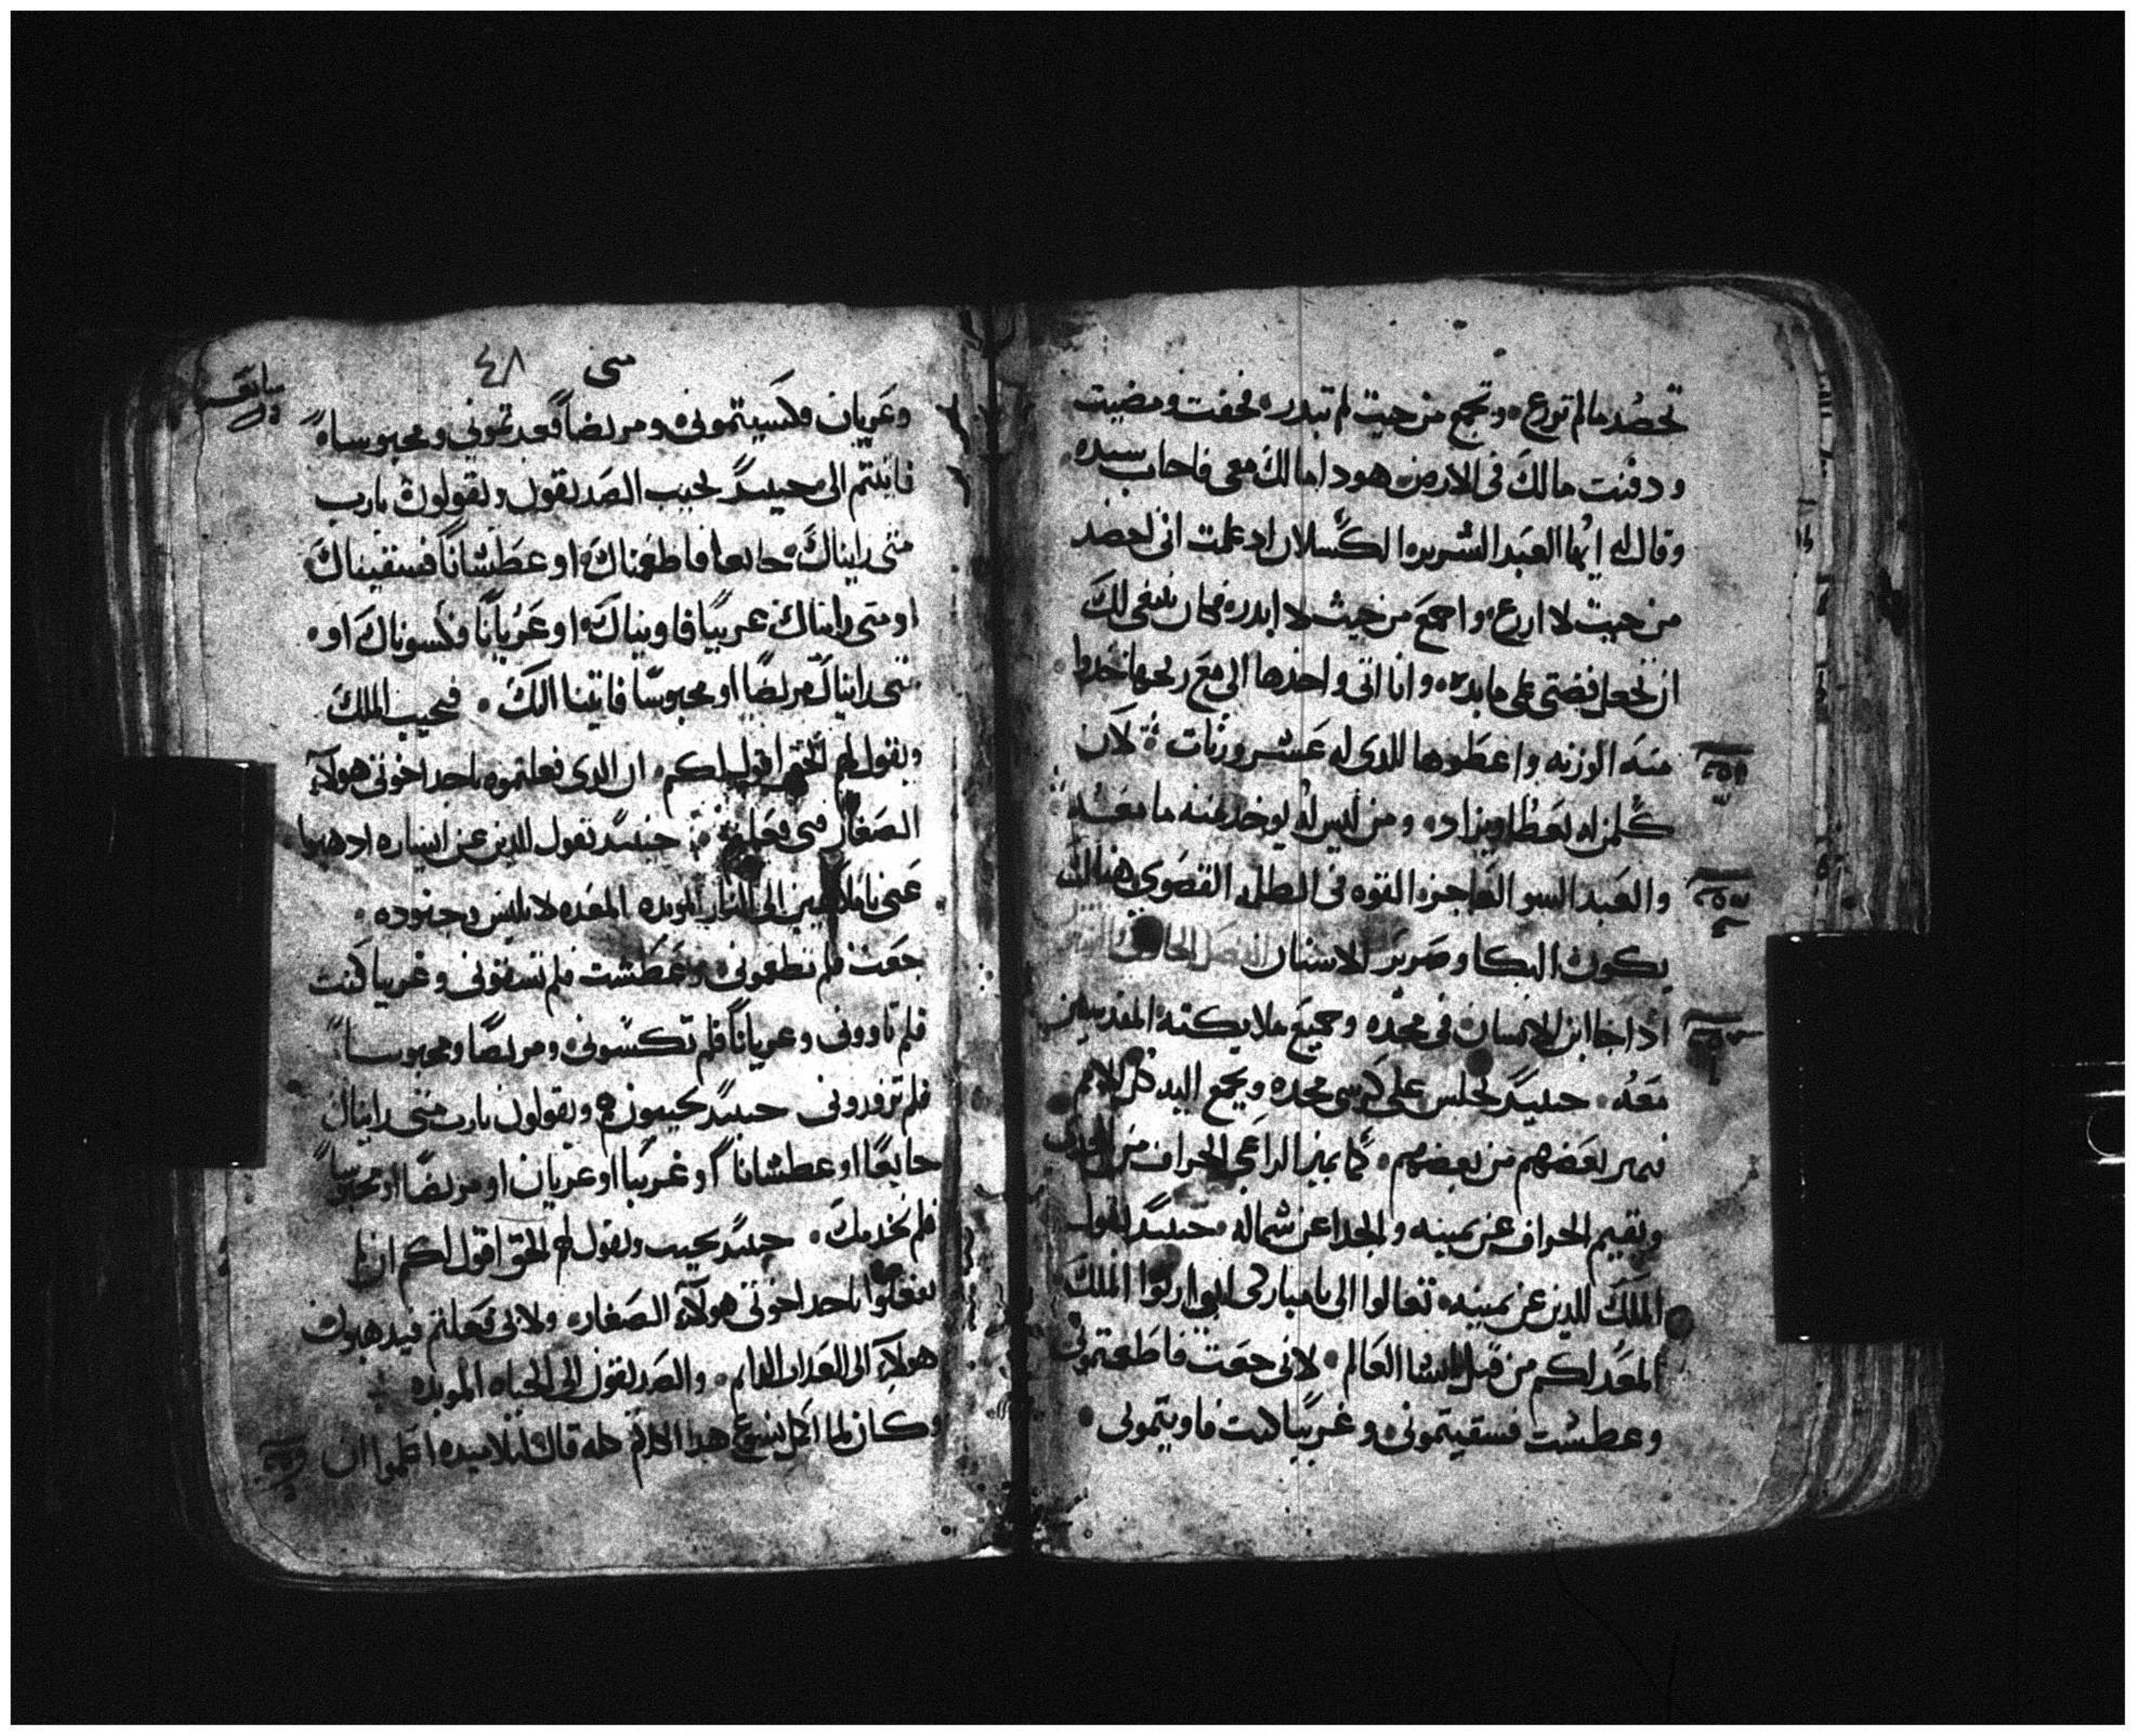 تحصد مالم تزرع وتجمع من حيث لم تبدر فخفت ومضيت
ودفنت مالك فى الارض هودا مالك معى فاجاب سيده
وقال له ايها العبد الشرير الكسلان اد علمت انى احصد
من حيث لا ازرع واجمع من حيث لا ابدر فكان ينبغى لك
ان تجعل فضتى على مايده وانا اتى واخدها الى مع ربحها خدوا
منه الوزنه واعطوها للدى له عشر وزنات لان
كلمن له يعطا ويزاد ومن ليس له يوخد منه ما معه
والعبد السو العاجز القوه فى الظلمه القصوى هنالك
يكون البكا وصرير الاسنان الفصل
ادا جا ابن الانسان فى مجده وجميع ملايكته المقدسين
معه حينيد يجلس على كرسى مجده ويجمع اليه كل الامم
فيميز بعضهم من بعضهم كما يميز الراعى الخراف من الجدى
ويقيم الخراف عن يمينه والجدا عن شماله حينيد يقول
الملك للدين عن يمينه تعالوا الى يا مباركى ابى ارتوا الملك
المعد لكم من قبل انشا العالم لانى جعت فاطعمتمونى
وعطشت فسقيتمونى وغريبا كنت فاويتمونى
متى ٤٨
وعريان فكسيتمونى ومريضا فعدتمونى ومحبوسا
فاتيتم الى حينيد يجيب الصديقون ويقولون يارب
متى رايناك جايعا فاطعمناك او عطشانا فسقيناك
او متى رايناك غريبا فاويناك او عريانا فكسوناك او
متى رايناك مريضا او محبوسا فاتينا اليك فيجيب الملك
ويقول لهم الحق اقول لكم ان الدى فعلتموه باحد اخوتى هولاء
الصغار فبى فعلتم حينيد يقول للدين عن يساره ادهبوا
عنى يا ملاعين الى النار الموبده المعده لابليس وجنوده
جعت فلم تطعمونى وعطشت فلم تسقونى وغريبا كنت
فلم تاوونى وعريانا فلم تكسونى ومريضا ومحبوسا
فلم تزورونى حينيد يجيبون هم ويقولون يارب متى رايناك
جايعا او عطشانا او غريبا او عريان او مريضا او محبوسا
فلم نخدمك حينيد يجيب ويقول لهم الحق اقول لكم ان لم
تفعلوا باحد اخوتى هولاء الصغار ولا بى فعلتم فيدهبون
هولاء الى العداب الدايم والصديقون الى الحياه الموبده
وكان لما اكمل يسوع هدا الكلام كله قال لتلاميده اعلموا ان